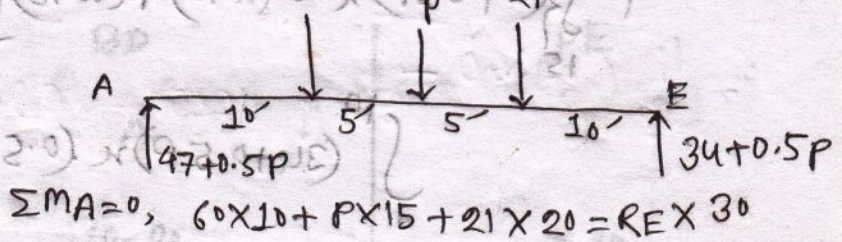 A E
10' 5' 5' 10'
47+0.5P 34+0.5P
ΣMA=0, 60×10+P×15+21×20=RE×30